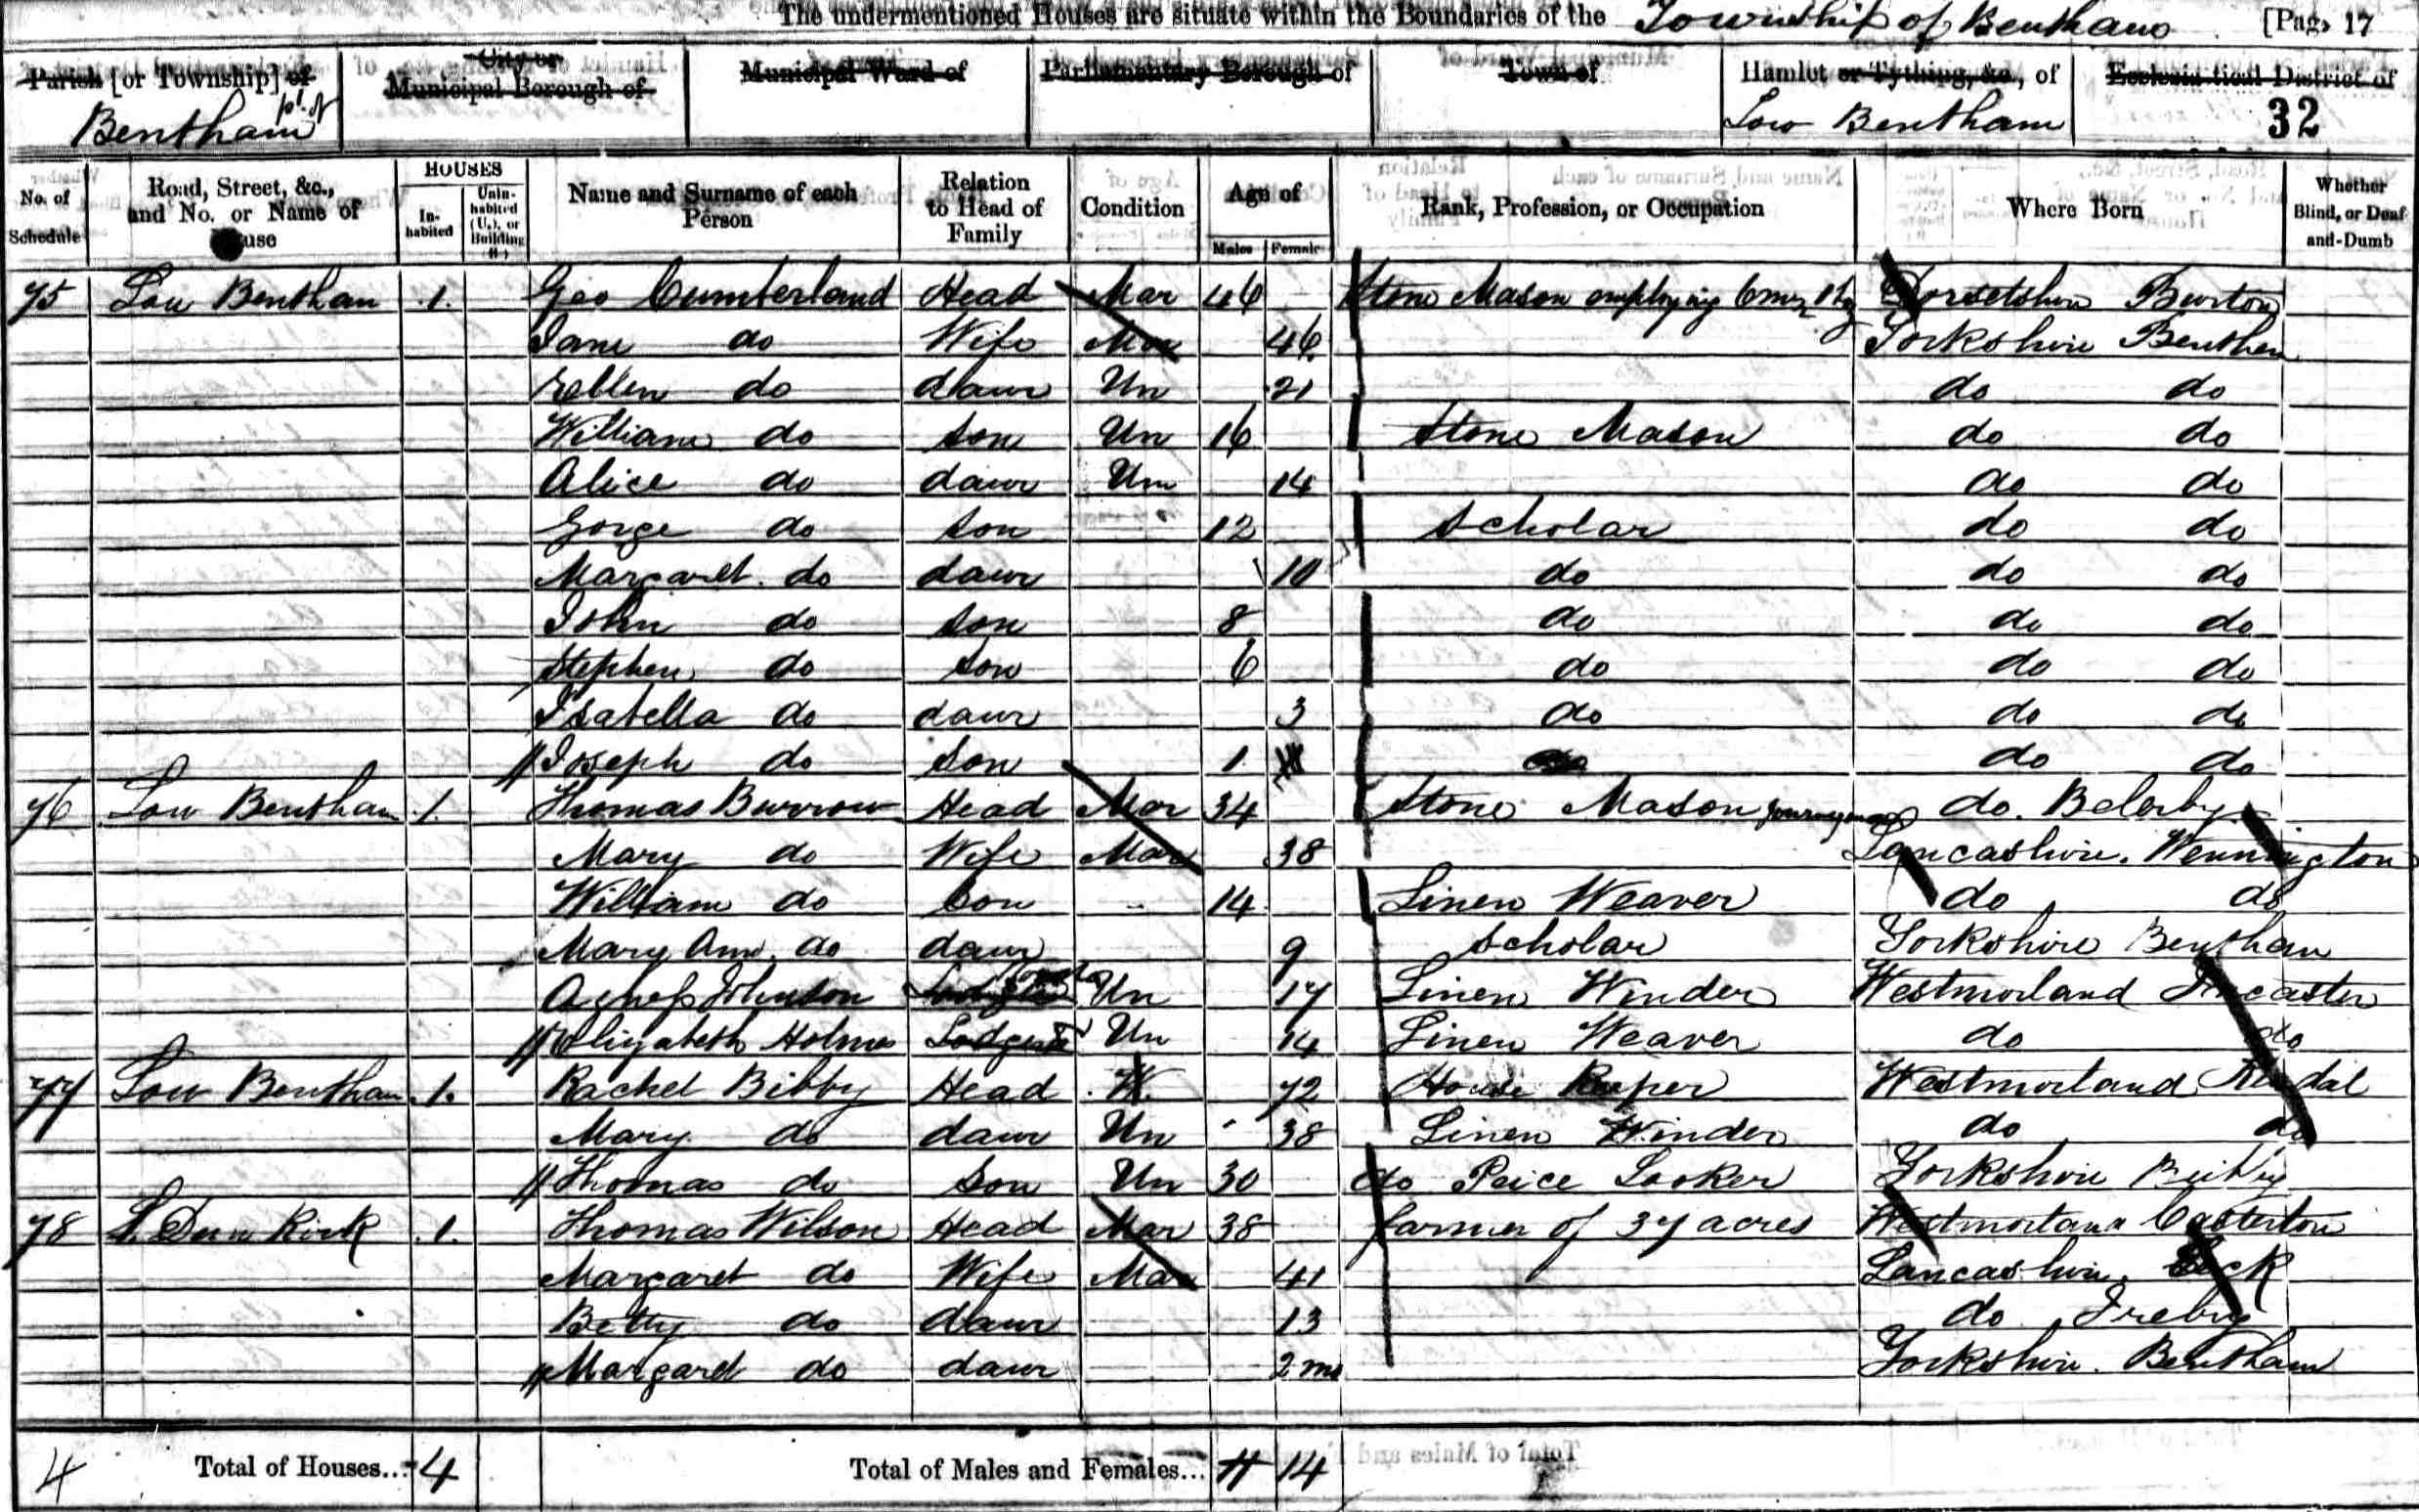 The undermentioned Houses are situate within the Boundaries of the Township of Bentham [Page 17
Parish [or Township] of Bentham pt of
City or Municipal Borough of
Municipal Ward of
Parliamentary Borough of
Town of
Hamlet or Tything, &c., of Low Bentham
Ecclesiastical District of
32
No. of Schedule
Road, Street, &c., and No. or Name of House
HOUSES
Inhabited
Uninhabited (U.), or Building (B.)
Name and Surname of each Person
Relation to Head of Family
Condition
Age of
Males
Females
Rank, Profession, or Occupation
Where Born
Whether Blind, or Deaf-and-Dumb
75 Low Bentham 1 Geo Cumberland Head Mar 46 Stone Mason employing 6 men 1 boy Dorsetshire Burton
Jane do Wife Mar 46 Yorkshire Benthem
Ellen do daur Un 21 do do
William do son Un 16 Stone Mason do do
Alice do daur Un 14 do do
Gorge do son 12 Scholar do do
Margaret do daur 10 do do do
John do son 8 do do do
Stephen do son 6 do do do
Isabella do daur 3 do do do
Joseph do son 1 do do
76 Low Bentham 1 Thomas Burrow Head Mar 34 Stone Mason journeyman do.
Mary do Wife Mar 38 Lancashire. Wennington
William do Son 14 Linen Weaver do do
Mary Ann do daur 9 Scholar Yorkshire Bentham
Agness Johnson Un 17 Linen Winder Westmorland
Elizabeth Holme Lodger Un 14 Linen Weaver do do
77 Low Bentham 1 Rachel Bibby Head W 72 House Keeper Westmorland Kendal
Mary do daur Un 38 Linen Winder do do
Thomas do Son Un 30 do Peice Looker Yorkshire
78 L. Dum Kirk 1 Thomas Wilson Head Mar 38 farmer of 37 acres Westmorland Casterton
Margaret do Wife Mar 41 Lancashire. Leck
Betty do daur 13 do Ireby
Margaret do daur 2 mo Yorkshire. Bentham
4 Total of Houses... 4 Total of Males and Females... 11 14